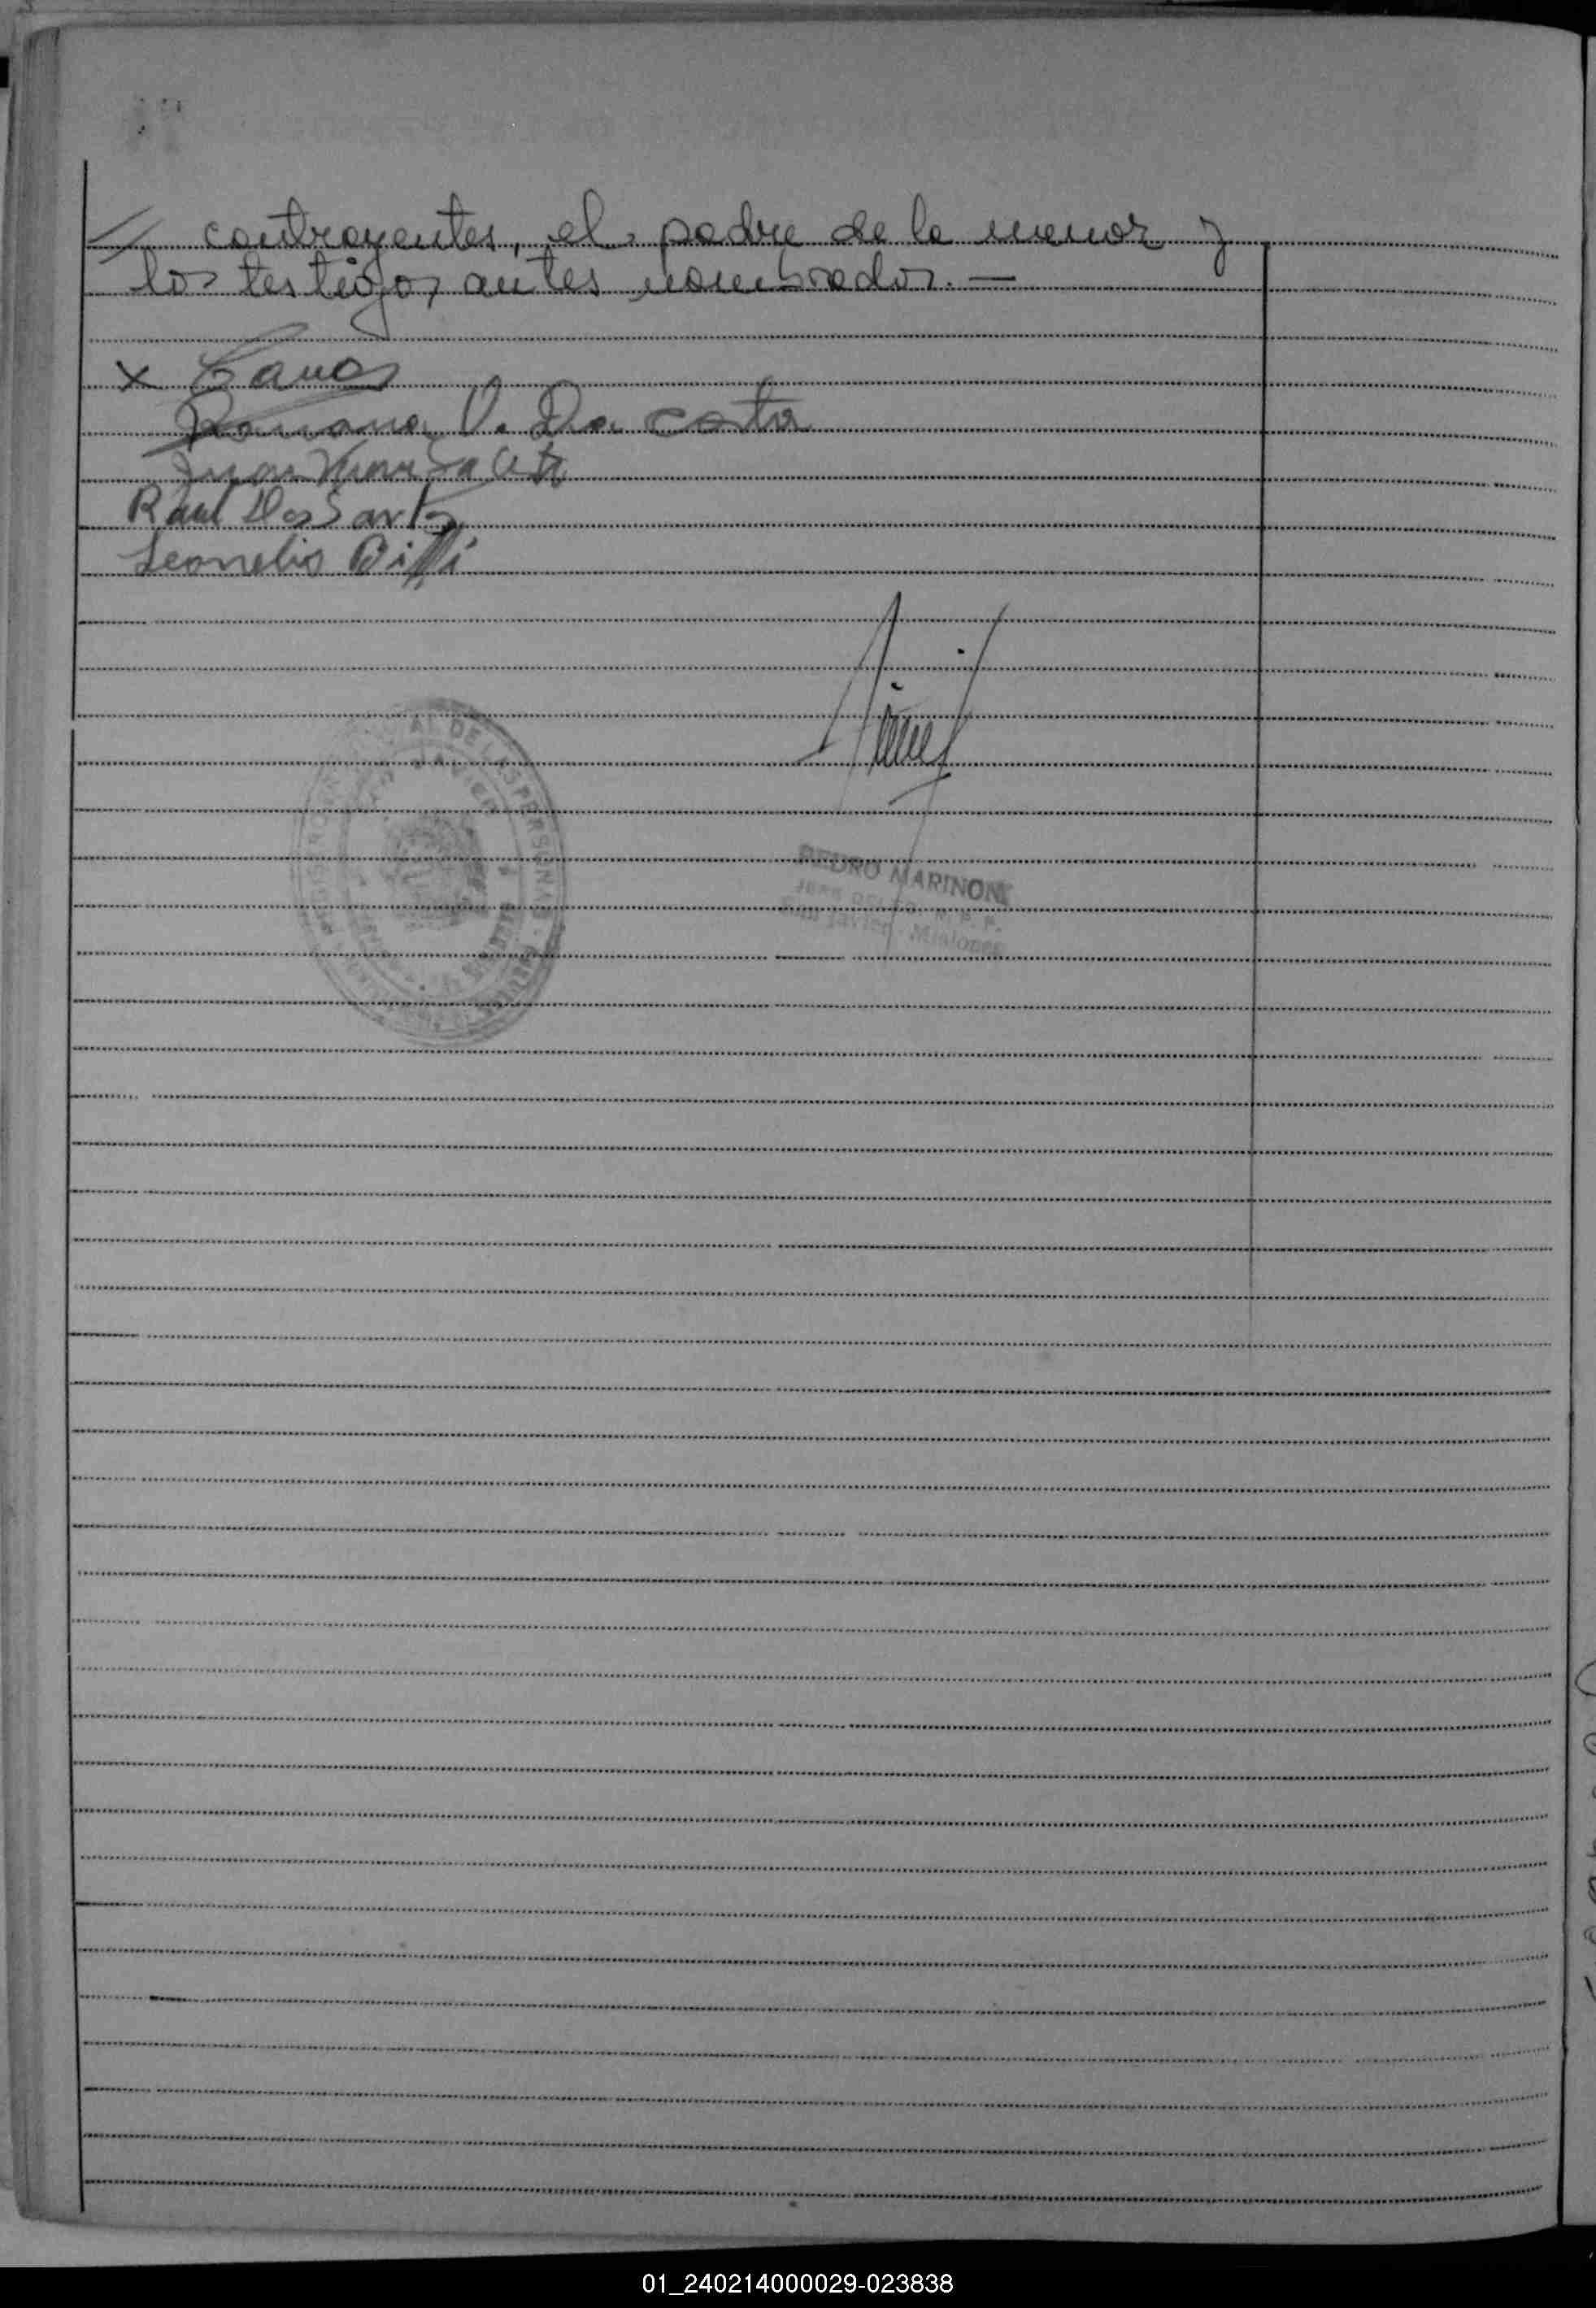 // contrayentes, el padre de la menor y
los testigos antes nombrados. —
x
Romana V. Da Costa
Juan Da Costa
Raul Dos Santos
Leonelio
DE LAS PERSONAS
SAN JAVIER
PEDRO MARINONI
San Javier - Misiones
01_240214000029-023838